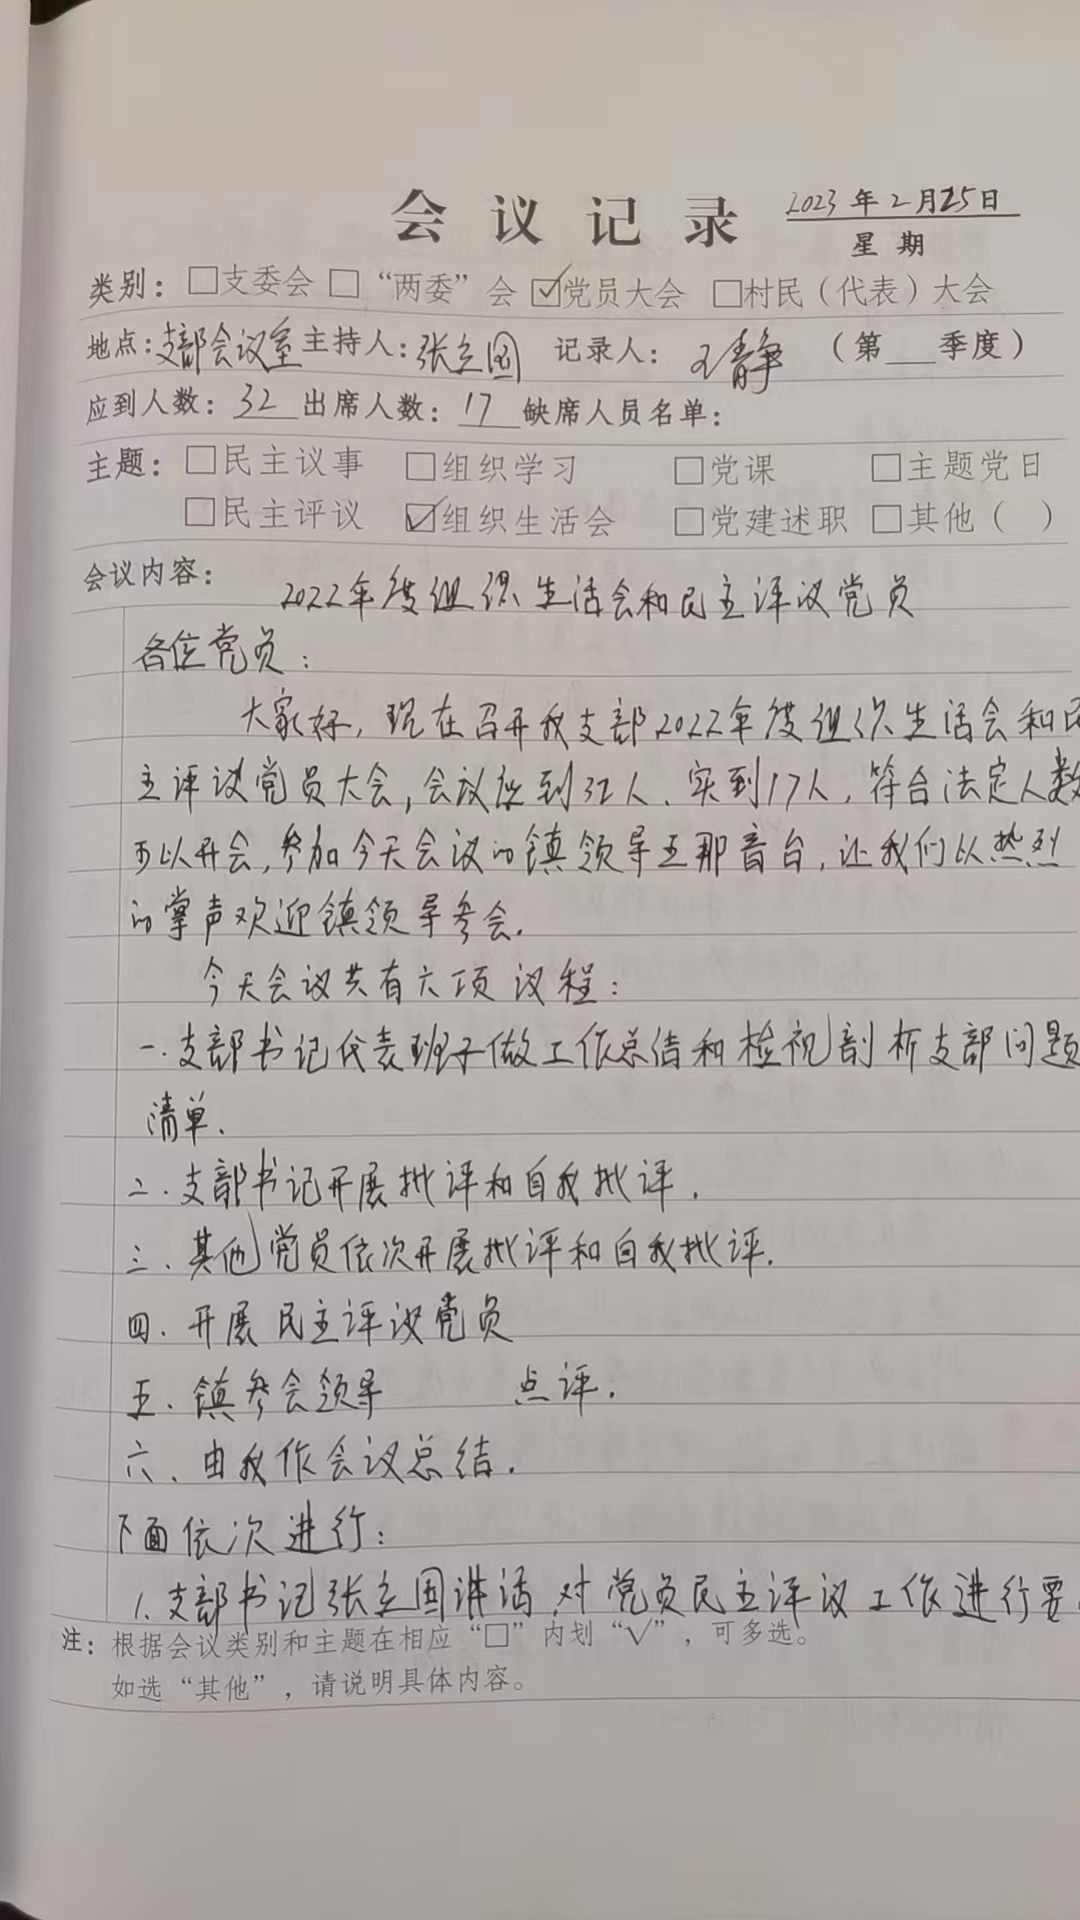 会议记录
2023年2月25日
星期
类别：□支委会 □“两委”会 ☑党员大会 □村民（代表）大会
地点：支部会议室 主持人：张立国 记录人：王静 （第___季度）
应到人数：32 出席人数：17 缺席人员名单：
主题：□民主议事 □组织学习 □党课 □主题党日
□民主评议 ☑组织生活会 □党建述职 □其他（ ）
会议内容：
2022年度组织生活会和民主评议党员
各位党员：
大家好，现在召开我支部2022年度组织生活会和民
主评议党员大会，会议应到32人、实到17人，符合法定人数
可以开会，参加今天会议的镇领导五那音台，让我们以热烈
的掌声欢迎镇领导参会.
今天会议共有六项议程：
一.支部书记代表班子做工作总结和检视剖析支部问题
清单.
二.支部书记开展批评和自我批评.
三、其他党员依次开展批评和自我批评.
四.开展民主评议党员
五.镇参会领导 点评.
六、由我作会议总结.
下面依次进行：
1.支部书记张立国讲话，对党员民主评议工作进行要
注：根据会议类别和主题在相应“□”内划“√”，可多选。
如选“其他”，请说明具体内容。